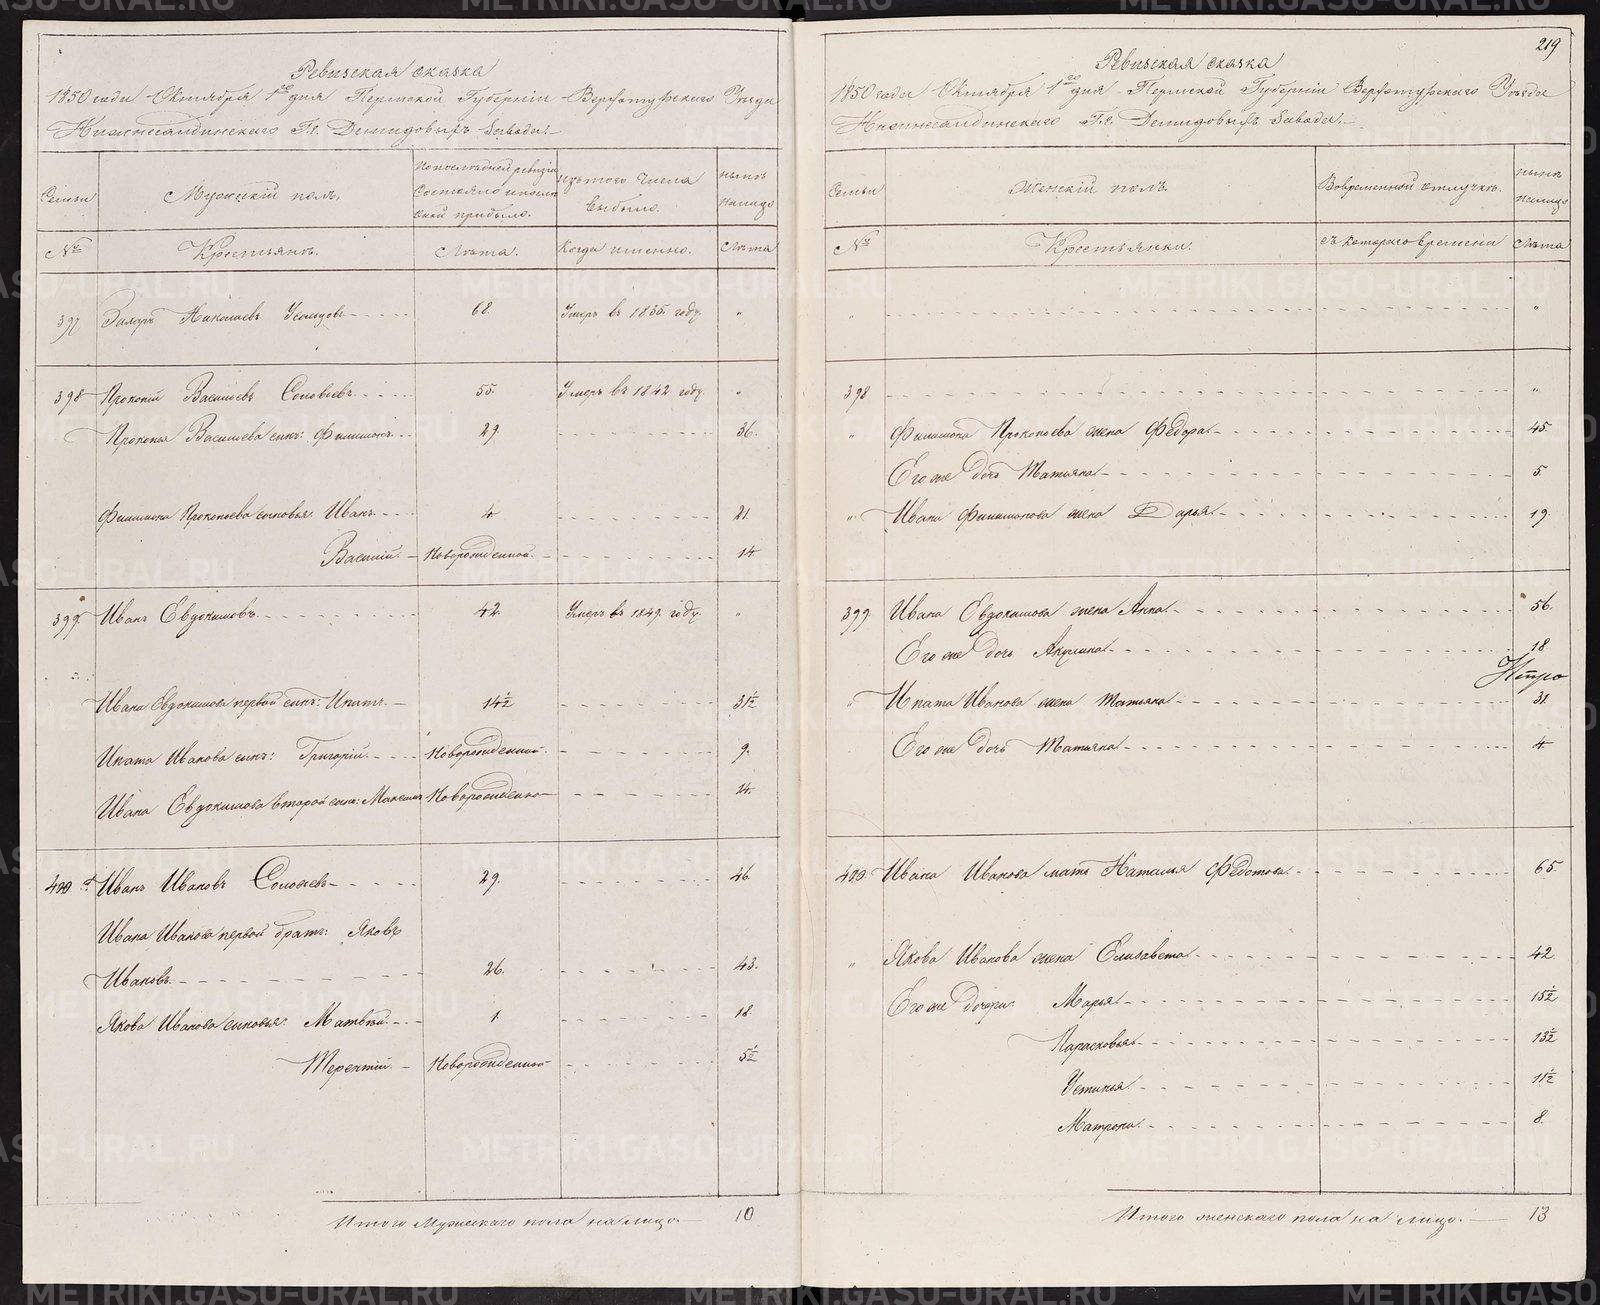 Ревизская сказка
1850 года Октября 1го дня Пермской Губернiи Верхотурскаго Уѣзда
Нижнесалдинскаго Гг. Демидовыхъ Завода.
Семьи
Мужескiй полъ.
По последней ревизiи
состояло и после
оной прибыло.
изъ того числа
выбыло.
нынѣ
налицо
№
Крестьяне.
Лѣта.
Когда именно.
Лѣта
397 Николаевъ 68. Умеръ въ 1835 году. "
398 Прокопiй Васильевъ Соловьевъ 55. Умеръ въ 1842 году. "
Прокопья Васильева сынъ: Филимонъ 29. 36.
Филимона Прокопьева сыновья: Иванъ 4 21.
Василiй. Новорожденной. 14.
399. Иванъ Евдокимовъ 42. Умеръ въ 1849. году. "
Ивана Евдокимова первой сынъ: Ипатъ. 14½ 31½
Ипата Иванова сынъ: Григорiй. Новорожденной. 9.
Ивана Евдокимова второй сынъ: Максимъ Новорожденно 14.
400. Иванъ Ивановъ 29. 46.
Ивана Иванова первой братъ: Яковъ
Ивановъ 26. 43.
Якова Иванова сыновья: Матвѣй. 1 18.
Терентiй. Новорожденной 5½
Итого Мужескаго пола на лицо. 10
219
Ревизская сказка
1850 года Октября 1го дня Пермской Губернiи Верхотурскаго Уѣзда
Нижнесалдинскаго Гг. Демидовыхъ Завода.
Семьи
Женскiй полъ.
Во временной отлучкѣ.
нынѣ
налицо
№
Крестьянки.
съ котораго времени
Лѣта
" "
398 "
" Филимона Прокопьева жена Федора 45.
Его же дочь Татьяна 5.
" Ивана Филимонова жена Дарья 19.
399. Ивана Евдокимова жена Анна 56.
Его же дочь Акулина 18
" Ипата Иванова жена Татьяна 31.
Его же дочь Татьяна 4
400. Ивана Иванова мать Наталья Федотова 65.
" Якова Иванова жена Елизавета 42.
Его же дочери: Марья 15½
Парасковья 13½
Устинья 11½
Матрона. 8.
Итого женскаго пола на лицо. 13
METRIKI.GASO-URAL.RU